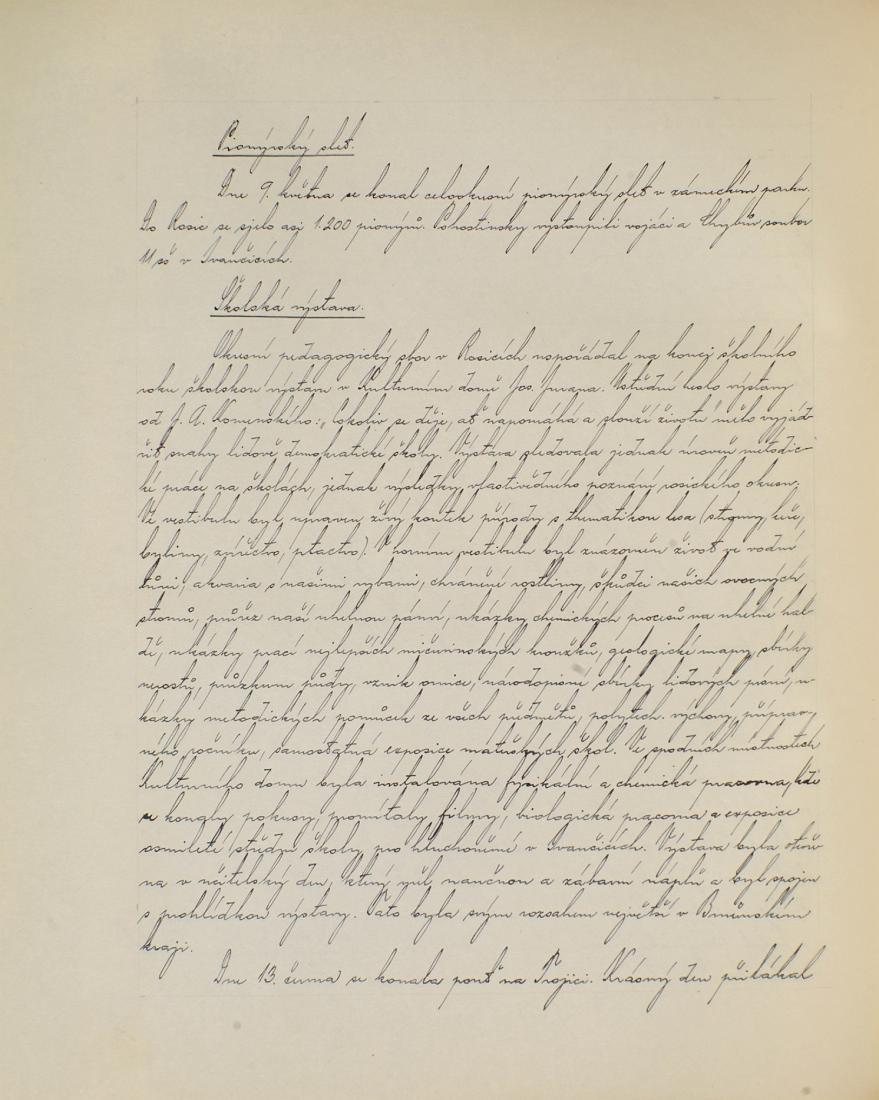 Pionýrský slet.
Dne 9. května se konal celookresní pionýrský slet v zámeckém parku.
Do Rosic se sjelo asi 1.200 pionýrů. Pohostinsky vystoupili vojáci a Chrybův soubor
11sš v Ivančicích.
Školská výstava.
Okresní pedagogický sbor v Rosicích uspořádal na konci školního
roku školskou výstavu v Kulturním domě Jos. Jurana. Ústřední heslo výstavy
od J. A. Komenského: „Cokoliv se děje, ať napomáhá a slouží životu" mělo vyjád-
řit snahy lidově demokratické školy. Výstava sledovala jednak úroveň metodic-
ké práce na školách, jednak výsledky vlastivědného poznání rosického okresu.
Ve vestibulu byl upraven živý koutek přírody s thematikou lesa (stromy, keře,
byliny, zvířectvo, ptactvo). V horním vestibulu byl znázorněn život ve vodní
tůni, akvaria s našimi rybami, chráněné rostliny, škůdci našich ovocných
stromů, průřez naší uhelnou pánví, ukázky chemických procesů na uhelné hal-
dě, ukázky prací nejlepších mičurinských kroužků, geologické mapy, sbírky
nerostů, průzkum půdy, vznik ornice, národopisné sbírky lidových písní, u-
kázky metodických pomůcek ze všech předmětů, polytech. výchovy, příprav-
ného ročníku, samostatná exposice mateřských škol. Ve spodních místnostech
Kulturního domu byla instalována fysikální a chemická pracovna, kde
se konaly pokusy, promítaly filmy, biologická pracovna a exposice
osmileté střední školy pro hluchoněmé v Ivančicích. Výstava byla otevře-
na v učitelský den, který měl naučnou a zábavní náplň a byl spojen
s prohlídkou výstavy. Tato byla svým rozsahem největší v Brněnském
kraji.
Dne 13. června se konala pouť na Trojici. Krásný den přilákal